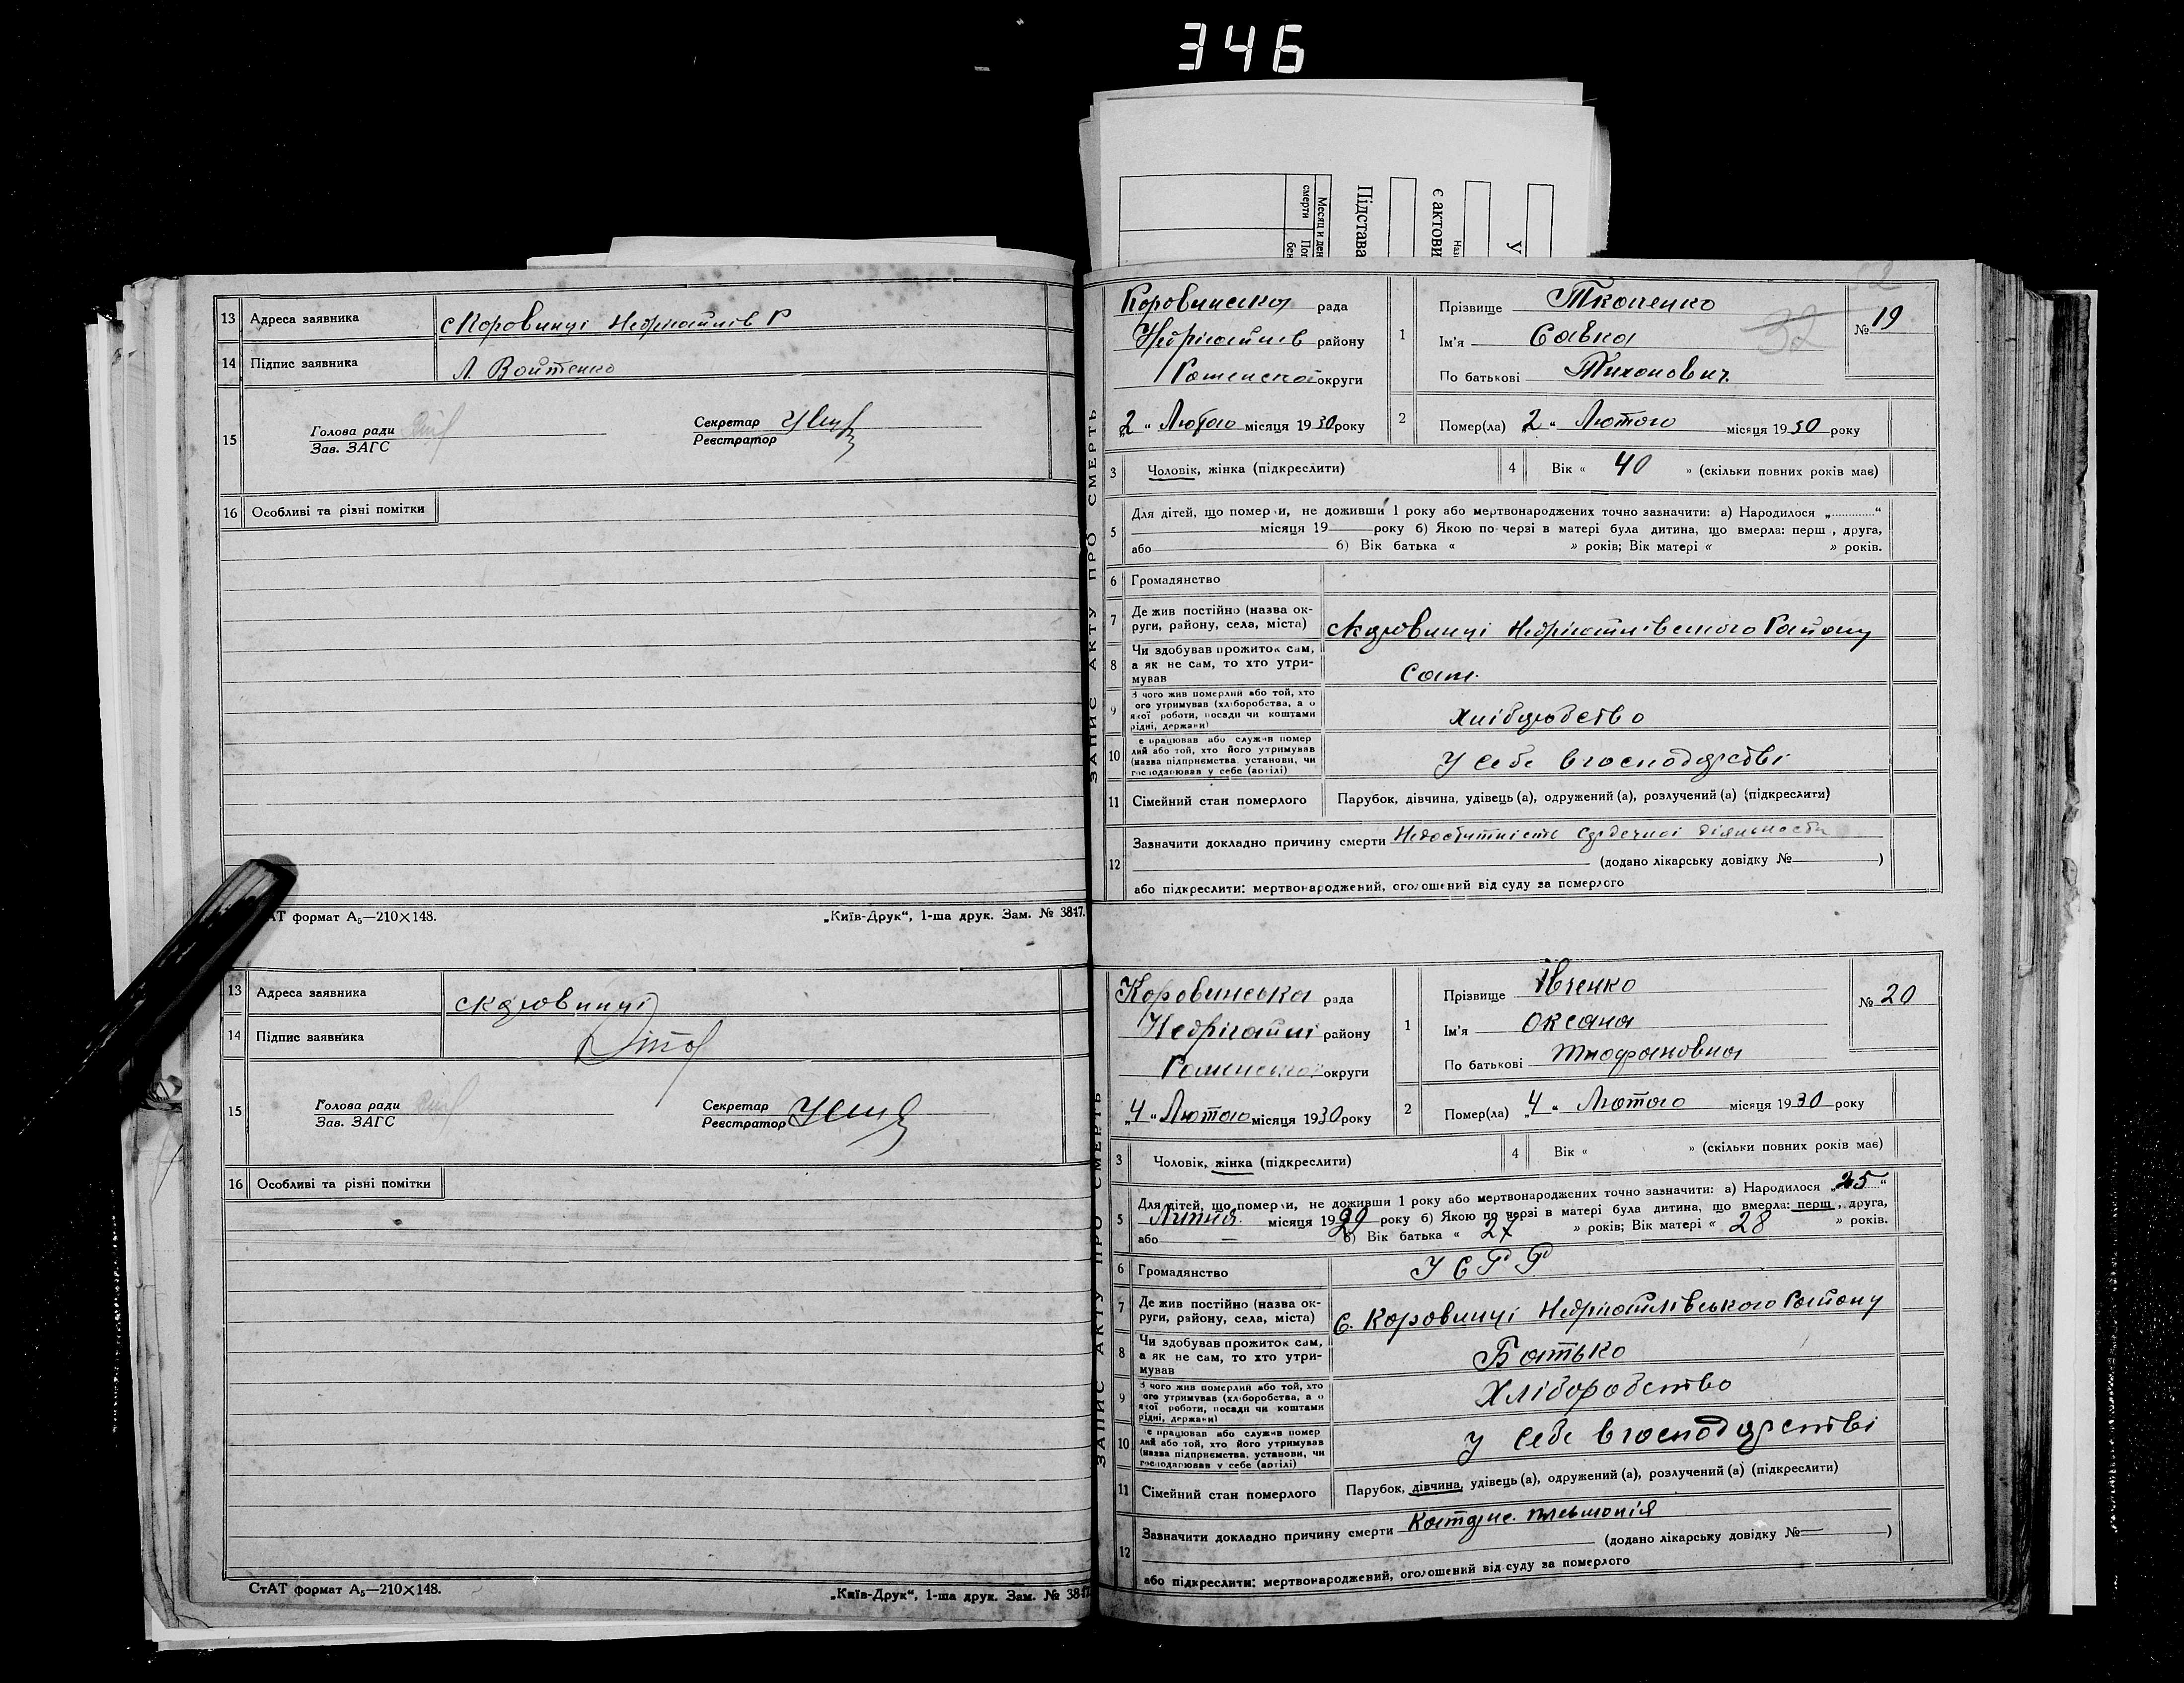 346
Месяц и ден
смерти
Підстава
є актови
У
13 Адреса заявника с Коровинці Недригайлів Р
14 Підпис заявника Л. Войтенко
15 Голова ради
Зав. ЗАГС
Секретар
Реєстратор
16 Особливі та різні помітки
АТ формат А5—210×148. „Київ-Друк“, 1-ша друк. Зам. № 3847.
13 Адреса заявника с Коровинці
14 Підпис заявника
15 Голова ради
Зав. ЗАГС
Секретар
Реєстратор
16 Особливі та різні помітки
СтАТ формат А5—210×148. „Київ-Друк“, 1-ша друк. Зам. № 3847
ЗАПИС АКТУ ПРО СМЕРТЬ
Коровинська рада
Недригайлів району
Роменської округи
„2“ Лютого місяця 1930 року
1 Прізвище Ткаченко
Ім'я Савка
По батькові Тихонович.
32
№ 19
2 Помер(ла) „2“ Лютого місяця 1930 року
3 Чоловік, жінка (підкреслити)
4 Вік « 40 » (скільки повних років має)
5 Для дітей, що помер и, не доживши 1 року або мертвонароджених точно зазначити: а) Народилося „............“
місяця 19 року б) Якою по черзі в матері була дитина, що вмерла: перш , друга,
або 6) Вік батька « » років; Вік матері « » років.
6 Громадянство
7 Де жив постійно (назва ок-
руги, району, села, міста) с Коровинці Недригайлівського Району
8 Чи здобував прожиток сам,
а як не сам, то хто утри-
мував Сам.
9 З чого жив померлий або той, хто
ого утримував (хліборобства, а о
якої роботи, посади чи коштами
рідні, держави) Хліборобство
10 е працював або служив помер
лий або той, хто його утримував
(назва підприємства, установи, чи
господарював у себе (артілі) У себе в господарстві
11 Сімейний стан померлого Парубок, дівчина, удівець (а), одружений (а), розлучений (а) (підкреслити)
12 Зазначити докладно причину смерти Недостатність сердечної діяльности
(додано лікарську довідку № )
або підкреслити: мертвонароджений, оголошений від суду за померлого
ЗАПИС АКТУ ПРО СМЕРТЬ
Коровинська рада
Недригайлі району
Роменської округи
„4“ Лютого місяця 1930 року
1 Прізвище Івченко
Ім'я Оксана
По батькові
№ 20
2 Помер(ла) „4“ Лютого місяця 1930 року
3 Чоловік, жінка (підкреслити)
4 Вік « » (скільки повних років має)
5 Для дітей, що помер и, не доживши 1 року або мертвонароджених точно зазначити: а) Народилося „25“
Липня місяця 1929 року б) Якою по черзі в матері була дитина, що вмерла: перш , друга,
або — 6) Вік батька « 27 » років; Вік матері « 28 » років.
6 Громадянство УСРР
7 Де жив постійно (назва ок-
руги, району, села, міста) с. Коровинці Недригайлівського Району
8 Чи здобував прожиток сам,
а як не сам, то хто утри-
мував Батько
9 З чого жив померлий або той, хто
ого утримував (хліборобства, а о
якої роботи, посади чи коштами
рідні, держави) Хліборобство
10 е працював або служив помер
лий або той, хто його утримував
(назва підприємства, установи, чи
господарював у себе (артілі) У себе в господарстві
11 Сімейний стан померлого Парубок, дівчина, удівець (а), одружений (а), розлучений (а) (підкреслити)
12 Зазначити докладно причину смерти пневмонія
(додано лікарську довідку № — )
або підкреслити: мертвонароджений, оголошений від суду за померлого